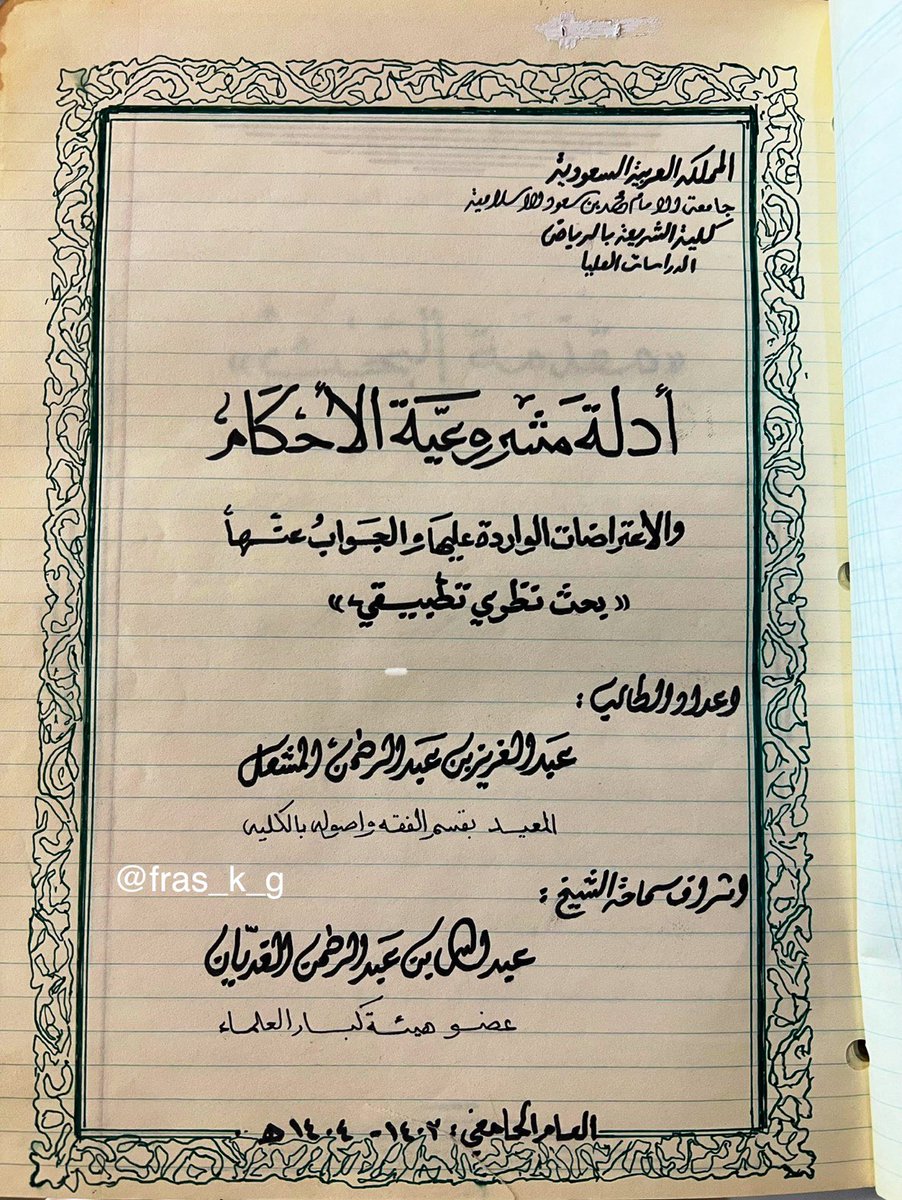 المملكة العربية السعودية
جامعة الامام محمد بن سعود الاسلامية
كلية الشريعة بالرياض
الدراسات العليا
أدلة مَشروعيَّة الأحكام
والاعتراضات الواردة عليها والجَوابُ عنها
«بحث نظري تطبيقي»
اعداد الطالب :
عبد العزيز بن عبد الرحمن المشعل
المعيد بقسم الفقه واصوله بالكلية
@fras_k_g
اشراف سماحة الشيخ :
عبد الله بن عبد الرحمن الغديّان
عضو هيئة كبار العلماء
العام الجامعي : ١٤٠٣ - ١٤٠٤ هـ